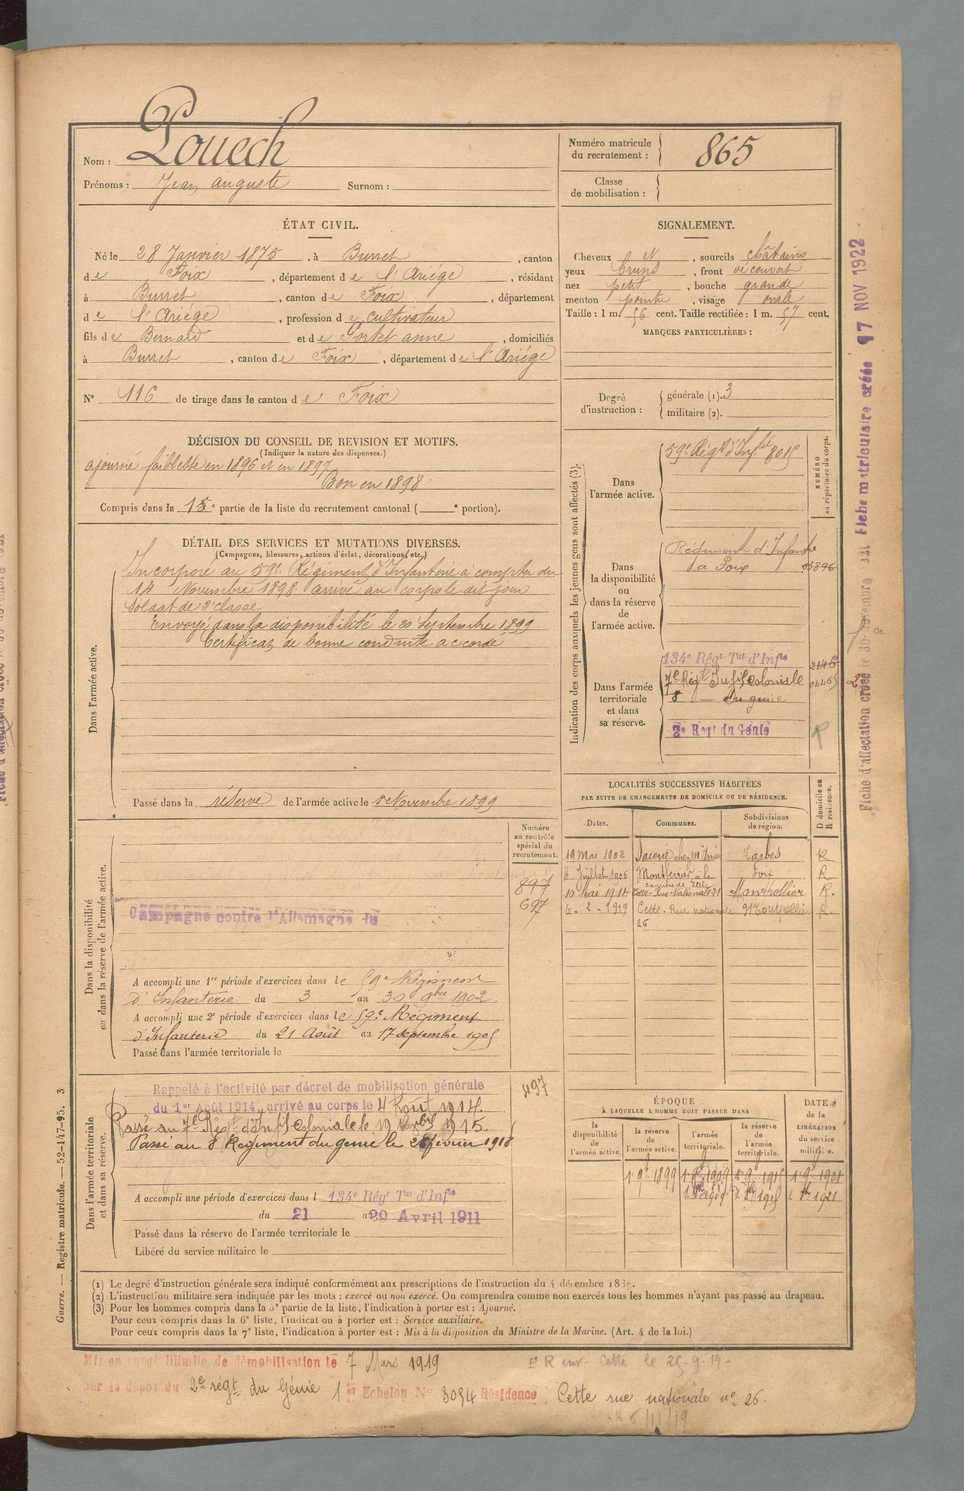 Nom : Pouech
Prénoms : Jean auguste Surnom :
Numéro matricule du recrutement : 865
Classe de mobilisation :
ÉTAT CIVIL.
Né le 28 Janvier 1875, à Burret, canton
de Foix, département de l'Ariége, résidant
à Burret, canton de Foix, département
de l'Ariége, profession de cultivateur
fils de Bernard et de Portet anne, domiciliés
à Burret, canton de Foix, département de l'Ariége
N° 116 de tirage dans le canton de Foix
SIGNALEMENT.
Cheveux et, sourcils châtains
yeux bruns, front découvert
nez petit, bouche grande
menton pointu, visage ovale
Taille : 1 m. 56 cent. Taille rectifiée : 1 m. 57 cent.
MARQUES PARTICULIÈRES :
Degré d'instruction : générale (1). 3
militaire (2).
DÉCISION DU CONSEIL DE REVISION ET MOTIFS.
(Indiquer la nature des dispenses.)
ajourné faiblesse en 1896 et en 1897
Bon en 1898
Compris dans la partie de la liste du recrutement cantonal ( portion).
DÉTAIL DES SERVICES ET MUTATIONS DIVERSES.
(Campagnes, blessures, actions d'éclat, décorations, etc.)
Dans l'armée active.
Incorporé au 59e Régiment d'Infanterie à compter du
14 Novembre 1898 arrivé au corps le dit jour
Soldat de 2e classe
Envoyé dans la disponibilité le 20 Septembre 1899
Certificat de bonne conduite accordé
Passé dans la réserve de l'armée active le 1er Novembre 1899
Indication des corps auxquels les jeunes gens sont affectés (3).
NUMÉRO au répertoire du corps.
Dans l'armée active. 59e Régt d'Infie
Dans la disponibilité ou dans la réserve de l'armée active.
Régiment d'Infanterie
à Foix
Dans l'armée territoriale et dans sa réserve.
134e Régt Tal d'Infie
7e Régt Inf Coloniale
8 — du génie
2e Regt du Génie
R
LOCALITÉS SUCCESSIVES HABITÉES
PAR SUITE DE CHANGEMENTS DE DOMICILE OU DE RÉSIDENCE.
Dates. Communes. Subdivisions de région. D domicile ou R résidence.
19 Mai 1902 Tarbes R
Juillet 1906 Montferrier Foix R
10 Mai 1914 Cette Rue Nationale 21 Montpellier R.
6 - 2 - 1919 Cette - Rue nationale 26 Montpellier R.
Dans la disponibilité ou dans la réserve de l'armée active.
Numéro au contrôle spécial du recrutement.
897
697
Campagne contre l'Allemagne du
A accompli une 1re période d'exercices dans le 59e Régiment
d'Infanterie du 3 au 30 9bre 1902.
A accompli une 2e période d'exercices dans le 59e Régiment
d'Infanterie du 21 Août au 17 septembre 1905
Passé dans l'armée territoriale le
Dans l'armée territoriale et dans sa réserve.
497
Rappelé à l'activité par décret de mobilisation générale
du 1er août 1914, arrivé au corps le 4 Août 1914.
Passé au 7e Régt d'Inf Coloniale le 1915.
Passé au 8e Régiment du genie le février 1918
A accompli une période d'exercices dans l 134e Régt Tal d'Infie
du 21 au 29 Avril 1911
Passé dans la réserve de l'armée territoriale le
Libéré du service militaire le
ÉPOQUE
A LAQUELLE L'HOMME DOIT PASSER DANS
la disponibilité de l'armée active.
la réserve de l'armée active.
l'armée territoriale.
la réserve de l'armée territoriale.
DATE de la LIBÉRATION du service militaire.
(1) Le degré d'instruction générale sera indiqué conformément aux prescriptions de l'instruction du 4 décembre 1889.
(2) L'instruction militaire sera indiquée par les mots : exercé ou non exercé. On comprendra comme non exercés tous les hommes n'ayant pas passé au drapeau.
(3) Pour les hommes compris dans la 5e partie de la liste, l'indication à porter est : Ajourné.
Pour ceux compris dans la 6e liste, l'indication à porter est : Service auxiliaire.
Pour ceux compris dans la 7e liste, l'indication à porter est : Mis à la disposition du Ministre de la Marine. (Art. 4 de la loi.)
Mis en congé illimité de démobilisation le 7 Mars 1919
par le dépôt du 2e régt du Génie 1er Echelon N° 3094 Résidence Cette rue nationale n° 26.
Guerre. — Registre matricule. — 52-147-95. 3
Fiche matriculaire créée 17 NOV 1922